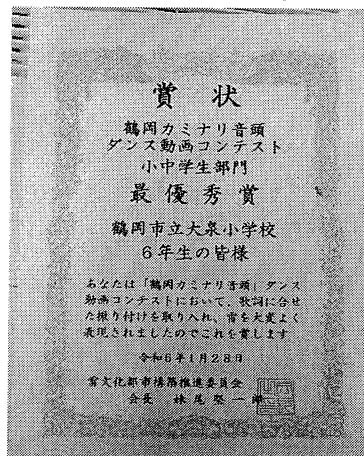 賞状
鶴岡カミナリ音頭
ダンス動画コンテスト
小中学生部門
最優秀賞
鶴岡市立大泉小学校
6年生の皆様
あなたは「鶴岡カミナリ音頭」ダンス
動画コンテストにおいて、歌詞に合せ
た振り付けを取り入れ、雷を大変よく
表現されましたのでこれを賞します
令和6年1月28日
雷文化都市構築推進委員会
会長 妹尾堅一郎